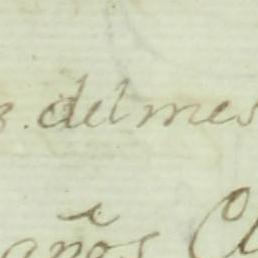 del mes
años